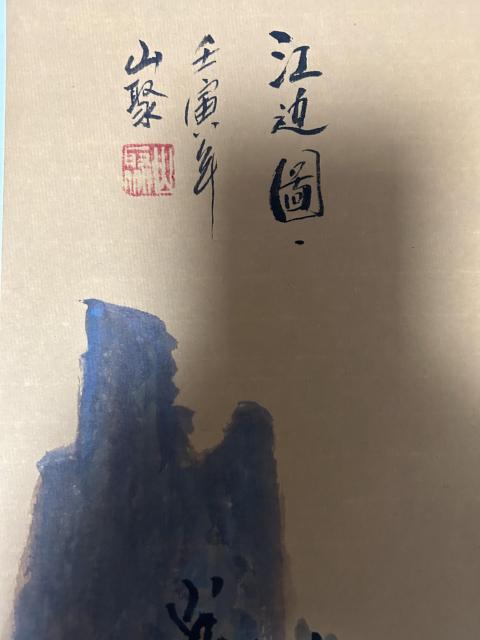 江边圖
壬寅年
山聚